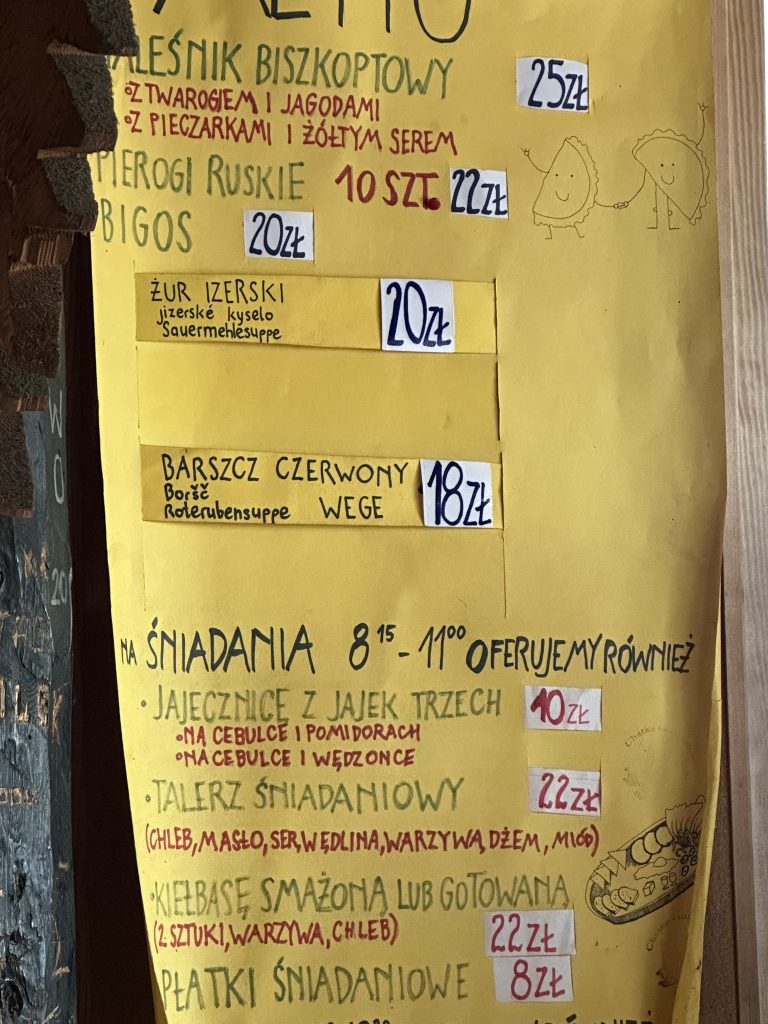 ALEŚNIK BISZKOPTOWY 25ZŁ
•Z TWAROGIEM I JAGODAMI
•Z PIECZARKAMI I ŻÓŁTYM SEREM
PIEROGI RUSKIE 10 SZT. 22ZŁ
BIGOS 20ZŁ
ŻUR IZERSKI 20ZŁ
jizerské kyselo
Sauermehlesuppe
BARSZCZ CZERWONY 18ZŁ
Boršč
Roterubensuppe WEGE
NA ŚNIADANIA 8 15 - 11 00 OFERUJEMY RÓWNIEŻ
• JAJECZNICĘ Z JAJEK TRZECH 10 ZŁ
•NA CEBULCE I POMIDORACH
•NA CEBULCE I WĘDZONCE
•TALERZ ŚNIADANIOWY 22ZŁ
(CHLEB, MASŁO, SER, WĘDLINA, WARZYWA, DŻEM, MIÓD)
•KIEŁBASĘ SMAŻONĄ LUB GOTOWANĄ
(2 SZTUKI, WARZYWA, CHLEB) 22ZŁ
PŁATKI ŚNIADANIOWE 8ZŁ